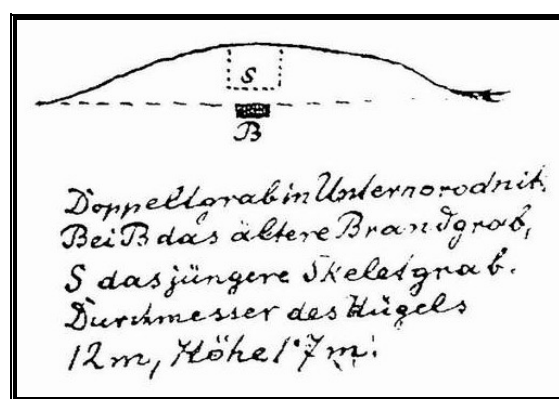 S
B
Doppeltgrab in Unternorodnit.
Bei B das ältere Brandgrab,
S das jüngere Skeletgrab.
Durchmesser des Hügels
12 m, Höhe 1·7 m.